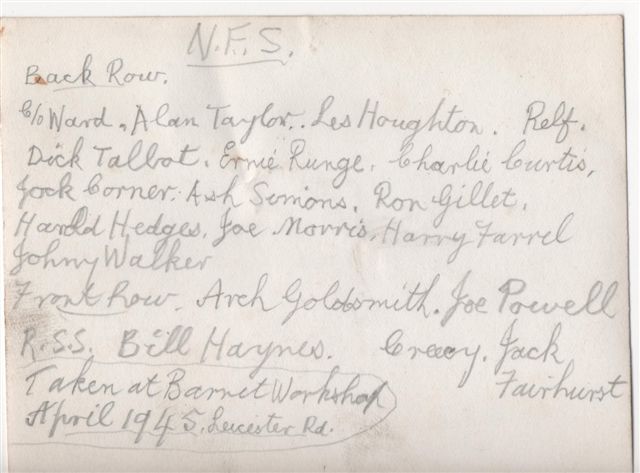 N.F.S.
Back Row.
C/o Ward, Alan Taylor. Les Houghton. Relf.
Dick Talbot. Ernie Runge. Charlie Curtis.
Jock Corner. Ash Simons. Ron Gillet.
Harold Hedges. Joe Morris. Harry Farrel
Johny Walker
Front Row. Arch Goldsmith. Joe Powell
R.S.S. Bill Haynes. Jack
Fairhurst
Taken at Barnet Workshop
April 1945. Leicester Rd.